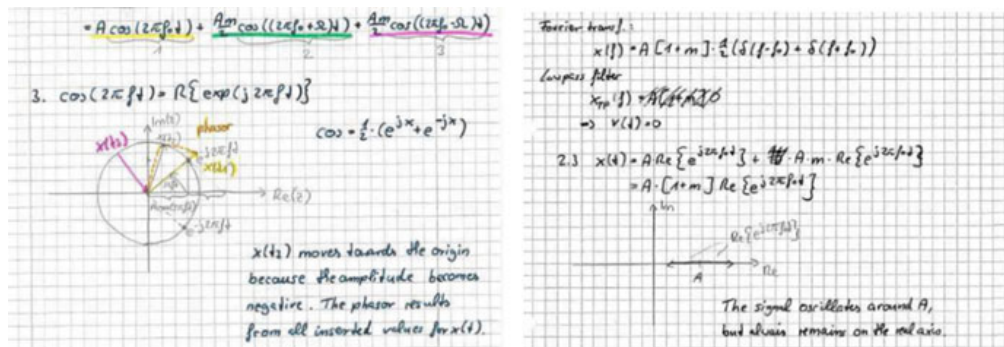 = A cos(2πf₀t) + Am/2 cos((2πf₀+Ω)t) + Am/2 cos((2πf₀-Ω)t)
1 2 3
3. cos(2πft) = R{exp(j2πft)}
cos = 1/2 · (e^jx + e^-jx)
Im(z)
phasor
x(t₂)
e^j2πft
x(t₁)
Re(z)
e^-j2πft
x(t₂) moves towards the origin
because the amplitude becomes
negative. The phasor results
from all inserted values for x(t).
Fourier transf.:
x(f) = A[1+m] · 1/2 (δ(f-f₀) + δ(f+f₀))
Lowpass filter
x_TP(f) =
→ v(t) = 0
2.3 x(t) = A·Re{e^j2πf₀t} + A·m·Re{e^j2πf₀t}
= A·[1+m] Re{e^j2πf₀t}
Im
Re{e^j2πf₀t}
A
Re
The signal oscillates around A,
but alwais remains on the real axis.